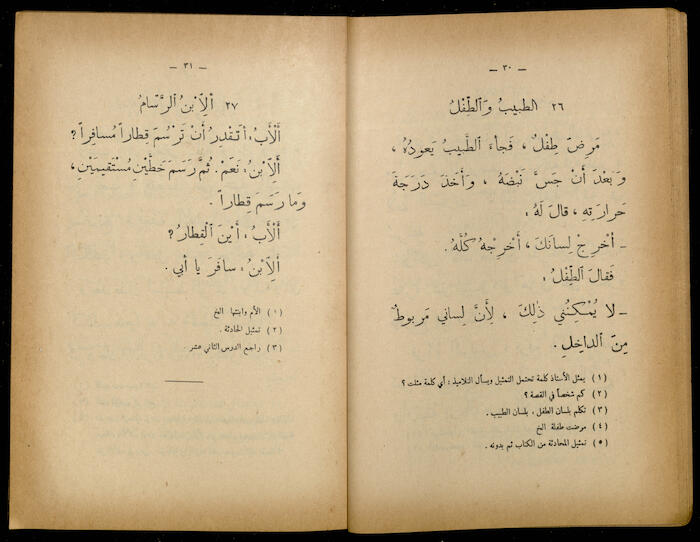 — ٣٠ —
٢٦ الطبيبُ وَٱلطِّفْلُ
مَرِضَ طِفْلٌ ، فَجاءَ ٱلطَّبيبُ يَعودُهُ ،
وَبَعْدَ أَنْ جَسَّ نَبْضَهُ ، وَأَخَذَ دَرَجَةَ
حَرارَتِهِ ، قالَ لَهُ :
ـ أَخْرِجْ لِسانَكَ ، أَخْرِجْهُ كُلَّهُ.
فَقالَ ٱلطِّفْلُ :
ـ لا يُمْكِنُني ذٰلِكَ ، لِأَنَّ لِساني مَربوطٌ
مِنَ ٱلداخِلِ .
(١) يمثل الأستاذ كلمة تحتمل التمثيل ويسأل التلاميذ : أي كلمة مثلت ؟
(٢) كم شخصاً في القصة ؟
(٣) تكلم بلسان الطفل ، بلسان الطبيب .
(٤) مرضت طفلة الخ
(٥) تمثيل المحادثة من الكتاب ثم بدونه .
— ٣١ —
٢٧ أَلِٱبْنُ ٱلرَّسّامُ
أَلْأَبُ : أَتَقْدِرُ أَنْ تَرْسُمَ قِطاراً مُسافِراً ؟
أَلِٱبْنُ : نَعَمْ . ثُمَّ رَسَمَ خَطَّيْنِ مُسْتَقيمَيْنِ ،
وَما رَسَمَ قِطاراً .
أَلْأَبُ : أَيْنَ ٱلْقِطارُ ؟
أَلِٱبْنُ : سافَرَ يا أَبي .
(١) الأم وابنتها الخ
(٢) تمثيل المحادثة .
(٣) راجع الدرس الثاني عشر .